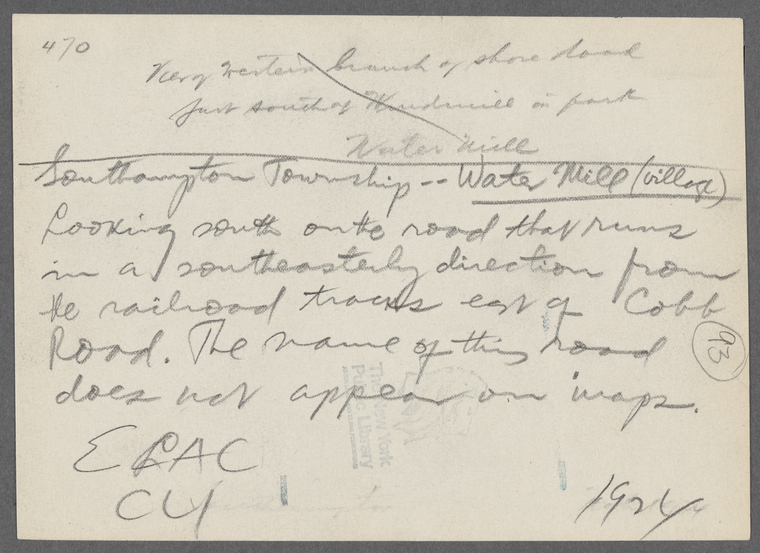 470
View of western branch of shore road
just south of Windmill in park
Water Mill
Southampton Township -- Water Mill (village)
Looking south on the road that runs
in a southeasterly direction from
the railroad tracks east of Cobb
Road. The name of this road
does not appear on maps.
93
The New York
Public Library
E
CU
1924